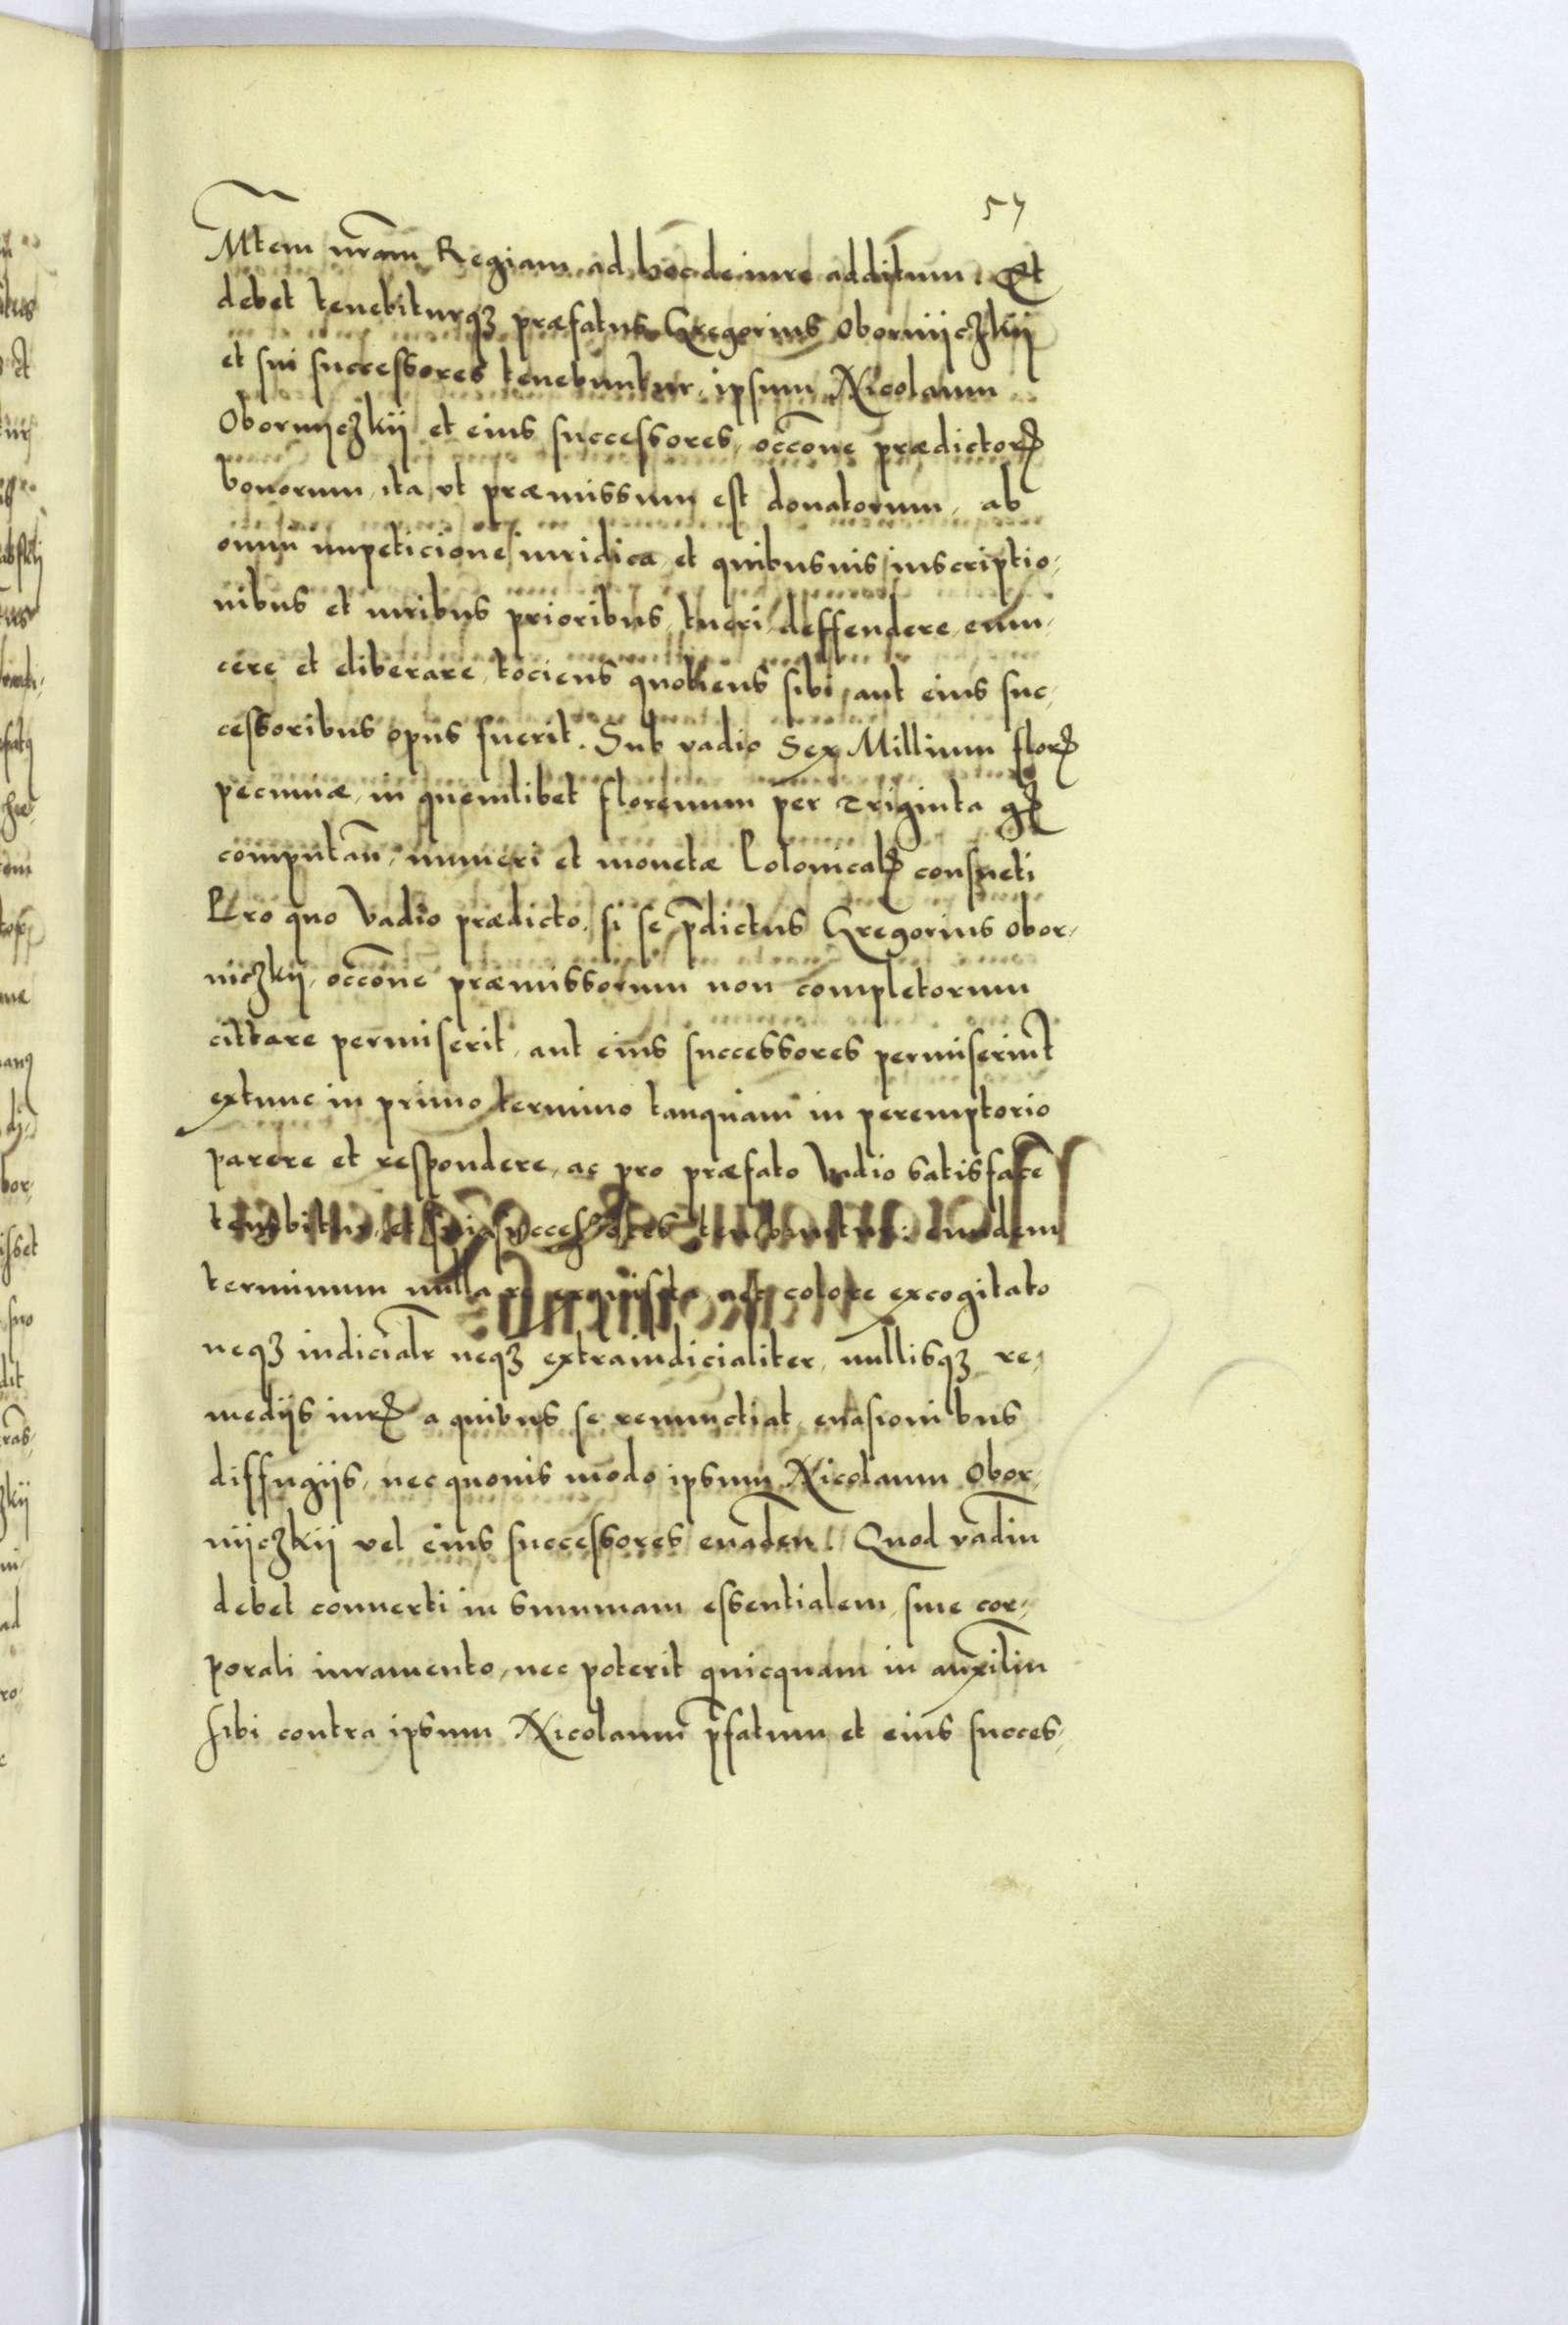 57
Mtem nram Regiam ad hoc de iure additum. Et
debet tenebiturqꝫ præfatus Gregorius Obornijczkij
et sui successores tenebuntur, ipsum Nicolaum
Obornyczkij et eius successores, occone prædictorꝶ
bonorum, ita vt præmissum est donatorum, ab
omni impeticione iuridica et quibusuis inscriptio-
nibus et iuribus prioribus, tueri, deffendere, euin-
cere et eliberare, tociens quotiens sibi, aut eius suc-
cessoribus opus fuerit. Sub vadio Sex Millium florꝶ
pecuniæ, in quemlibet florenum per Triginta gꝶ
computan, numeri et monetæ Polonicalꝶ consueti
Pro quo Vadio prædicto, si se pdictus Gregorius Obor-
niczky, occone præmissorum non completorum
cittare permiserit, aut eius successores permiserint
extunc in primo termino tanquam in peremptorio
parere et respondere, ac pro præfato Vadio satisface
tenebitur, et sui successores tenebuntur: eundem
terminum nulla re exquisita nec colore excogitato
neqꝫ iudicialr neqꝫ extraiudicialiter, nullisqꝫ re-
medijs iurꝶ a quibus se renunctiat, euasionibus
diffugijs, nec quouis modo ipsum Nicolaum Obor-
nijczkij vel eius successores euaden. Quod vadiu
debet conuerti in summam essentialem, sine cor-
porali iuramento, nec poterit quicquam in auxiliu
sibi contra ipsum Nicolaum pfatum et eius succes-